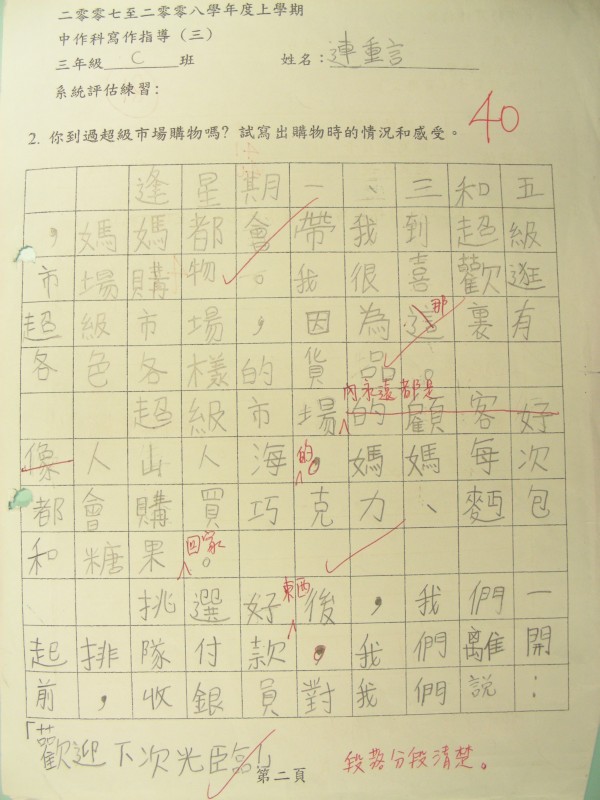 二零零七至二零零八學年度上學期
中作科寫作指導（三）
三年級 C 班 姓名：連重言
系統評估練習：
40
2. 你到過超級市場購物嗎？試寫出購物時的情況和感受。
逢星期一、三和五
，媽媽都會帶我到超級
市場購物。我很喜歡逛
那
超級市場，因為這裏有
各色各樣的貨品。
內永遠都是
超級市場的顧客好
像人山人海的。媽媽每次
都會購買巧克力、麵包
和糖果回家。
挑選好東西後，我們一
起排隊付款。我們離開
前，收銀員對我們說：
「歡迎下次光臨！」
第二頁
段落分段清楚。